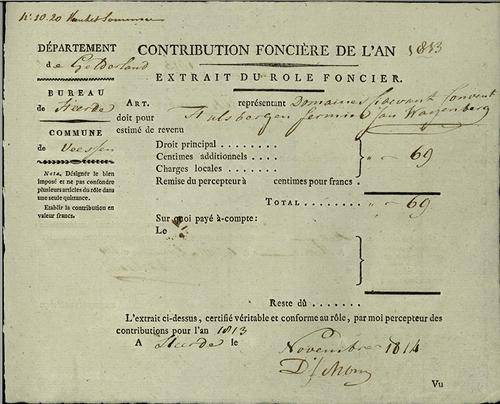 No. 10.20
DÉPARTEMENT
de Gelderland
BUREAU
de Heerde
COMMUNE
de Veessen
Nota. Désigner le bien
imposé et ne pas confondre
plusieurs articles du rôle dans
une seule quittance.
Etablir la contribution en
valeur francs.
CONTRIBUTION FONCIÈRE DE L'AN 1813
EXTRAIT DU ROLE FONCIER.
ART. représentant Domaines Couvent
doit pour Hulsbergen fermier Jan Wagenberg
estimé de revenu
Droit principal . . . . . . . . .
Centimes additionnels . . . . " " 69
Charges locales . . . . . . . .
Remise du percepteur à centimes pour francs .
TOTAL . . . . . . . . " " 69
Sur quoi payé à-compte:
Le
Reste dû . . . . . . .
L'extrait ci-dessus, certifié véritable et conforme au rôle, par moi percepteur des
contributions pour l'an 1813
A Heerde le Novembre 1814
Vu